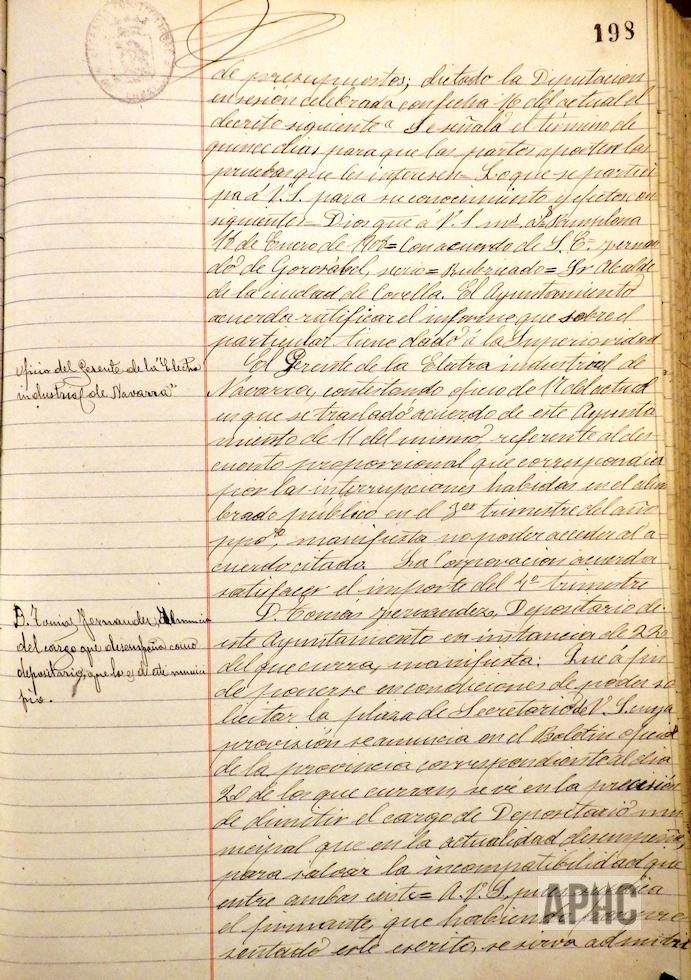 198
de presupuestos; dictado la Diputación
en sesión celebrada con fecha 16 del actual el
decreto siguiente" Se señala el término de
quince dias para que las partes aporten las
pruebas que les interesen= Lo que se partici
pa á V.S. para su conocimiento y efectos con
siguientes= Dios que á V.S. ms. as. Pamplona
18 de Enero de 190 = Con acuerdo de S.E.= Fernan
do de Gorosábel, srio= Rubricado= Sr Alcalde
de la ciudad de Corella. El Ayuntamiento
acuerda ratificar el informe que sobre el
particular tiene dado á la Superioridad
oficio del Gerente de la "Electra
industrial de Navarra"
El Gerente de la Electra industrial de
Navarra, contestando oficio de 17 del actual
en que se trasladó acuerdo de este Ayunta
miento de 11 del mismo, referente al des
cuento proporcional que correspondia
por las interrupciones habidas en el alum
brado publico en el 3er trimestre del año
ppdo, manifiesta no poder acceder al a-
cuerdo citado. La Corporación acuerda
satisfacer el importe del 4º trimestre
D. Tomas Fernandez, Renuncia
del cargo que desempeña como
depositario, que lo es de este munici
pio.
D. Tomas Fernandez, Depositario de
este Ayuntamiento en instancia de 22
del que cursa, manifiesta: Que á fin
de ponerse en condiciones de poder so
licitar la plaza de Secretario de V.S. cuya
provisión se anuncia en el Boletin oficial
de la provincia correspondiente al dia
20 de los que curran, se vé en la precisión
de dimitir el cargo de Depositario mu
nicipal que en la actualidad desempeña,
para salvar la incompatibilidad que
entre ambas existe= A V.S. pues suplica
el firmante, que habiendo por pre
sentado este escrito, se sirva admitir
APHC